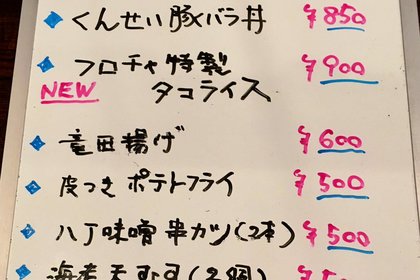 くんせい豚バラ丼 ¥850
フロチャ特製 ¥900
NEW タコライス
竜田揚げ ¥600
皮つきポテトフライ ¥500
八丁味噌串カツ(2本) ¥500
海老天むす(2個) ¥5